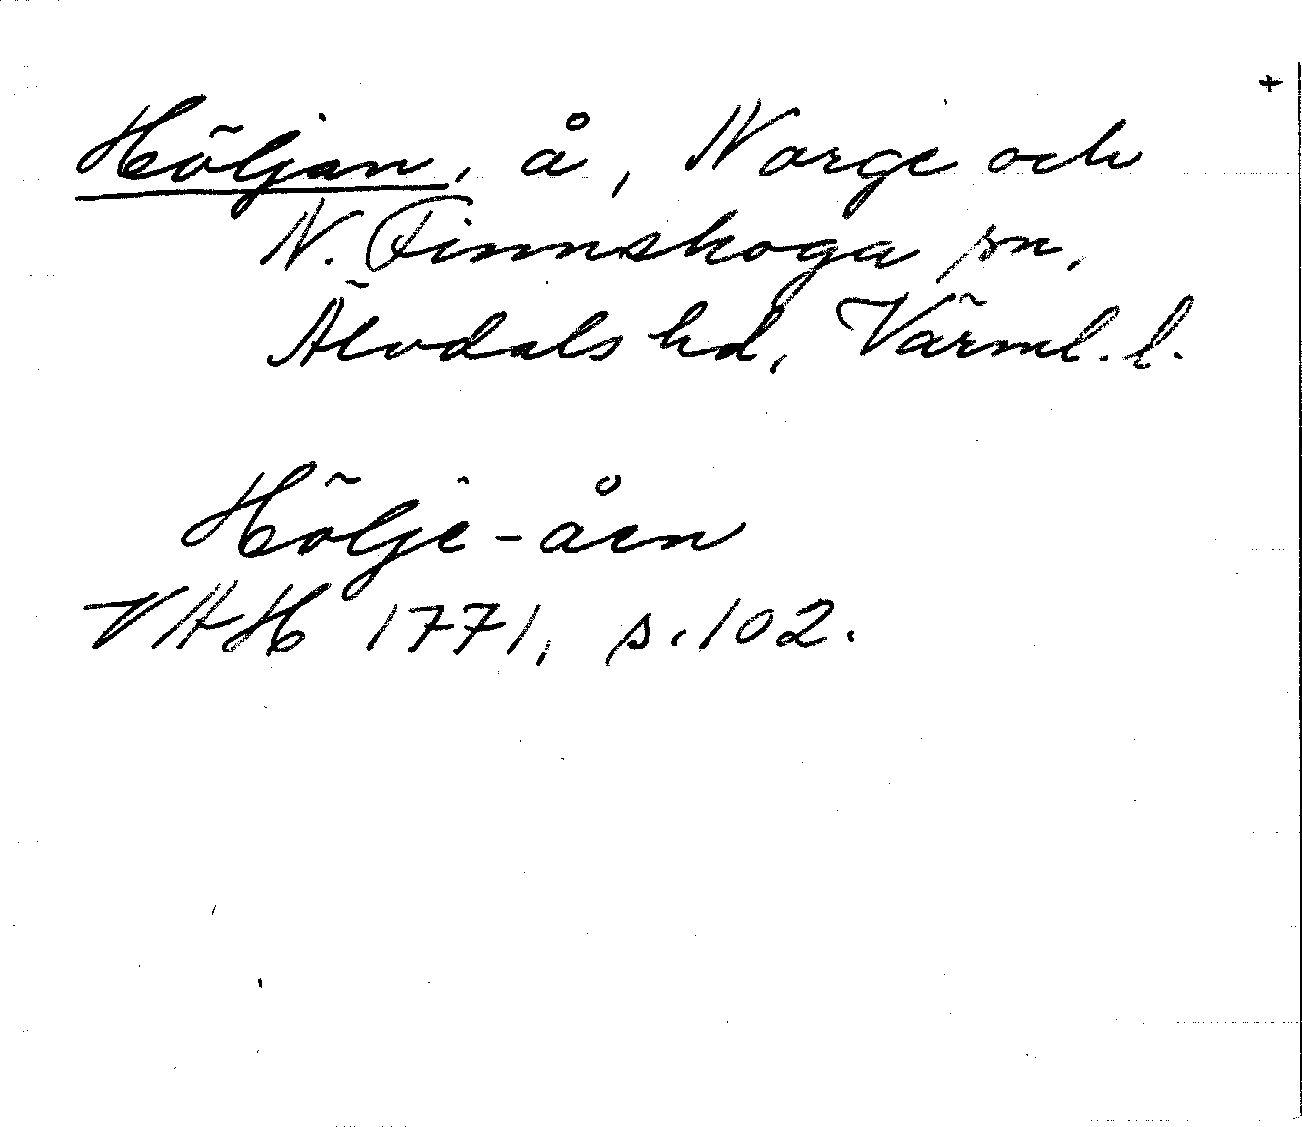 +
Höljan, å, Norge och
N. Finnskoga sn,
Älvdals hd, Värml. l.
Hölje-åen
VAH 1771, s. 102.